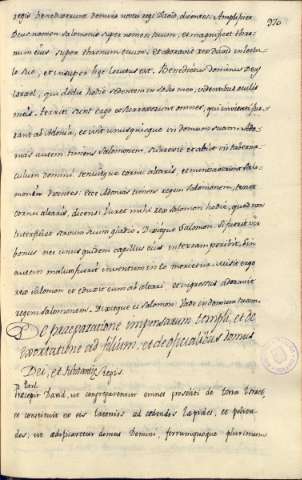 370
regis benedicerent domino nostro regi David, dicentes: Amplificet
Deus nomen Salomonis super nomen tuum, et magnificet thro-
num eius super thronum tuum. et adoravit rex David in lectu-
lo suo, et insuper haec locutus est. Benedictus dominus Deus
Israel, qui dedit hodie sedentem in solio meo, videntibus oculis
meis. territi sunt ergo et surrexerunt omnes, qui invitati fue-
rant ab Adonia, et ivit unusquisque in domum suam. Ado-
nias autem timens Salomonem, surrexit et abiit in taberna-
culum domini tenuitque cornu altaris, et nuntiaverunt Salo-
moni dicentes: Ecce Adonias timens regem Salomonem, tenuit
cornu altaris, dicens: Iuret mihi rex Salomon hodie, quod non
interficiet servum suum gladio. Dixitque Salomon. Si fuerit vir
bonus non cadet unus quidem capillus eius in terram
autem malum fuerit inventum in eo morietur. Misit ergo
rex Salomon et eduxit eum ab altari et ingressus adoravit
regem Salomonem. Dixitque ei Salomon. Vade in domum tuam.
De praeparatione impensarum templi, et de
exortatione ad filium, et de officialibus domus
Dei, et regis.
Praecepit David, ut congregarentur omnes proseliti de terra Israel,
et constituit ex eis latomos ad caedendos lapides, et polien-
dos, ut aedificaretur domus Domini, ferrumque plurimum